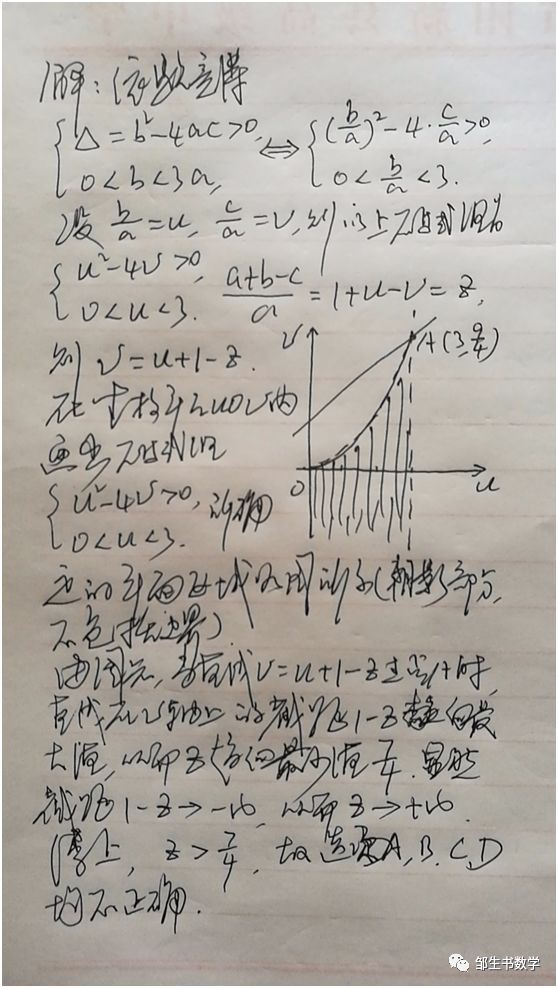 解：依题意得
{Δ=b²-4ac>0, 0<b<3a, ⇔ {(b/a)²-4·c/a>0, 0<b/a<3.
设 b/a=u, c/a=v, 则以上不等式组为
{u²-4v>0, 0<u<3. (a+b-c)/a=1+u-v=z,
则 v=u+1-z.
在坐标平面uOv内
画出不等式组
{u²-4v>0, 0<u<3. 所确
v
A(3,9/4)
O
u
定的平面区域如图所示(阴影部分,
不包括边界).
由图知,当直线v=u+1-z过点A时,
直线在v轴上的截距1-z取最
大值,从而z取最小值7/4.显然
截距1-z→-∞,从而z→+∞.
综上,z>7/4,故选项A,B,C,D
均不正确.
邹生书数学